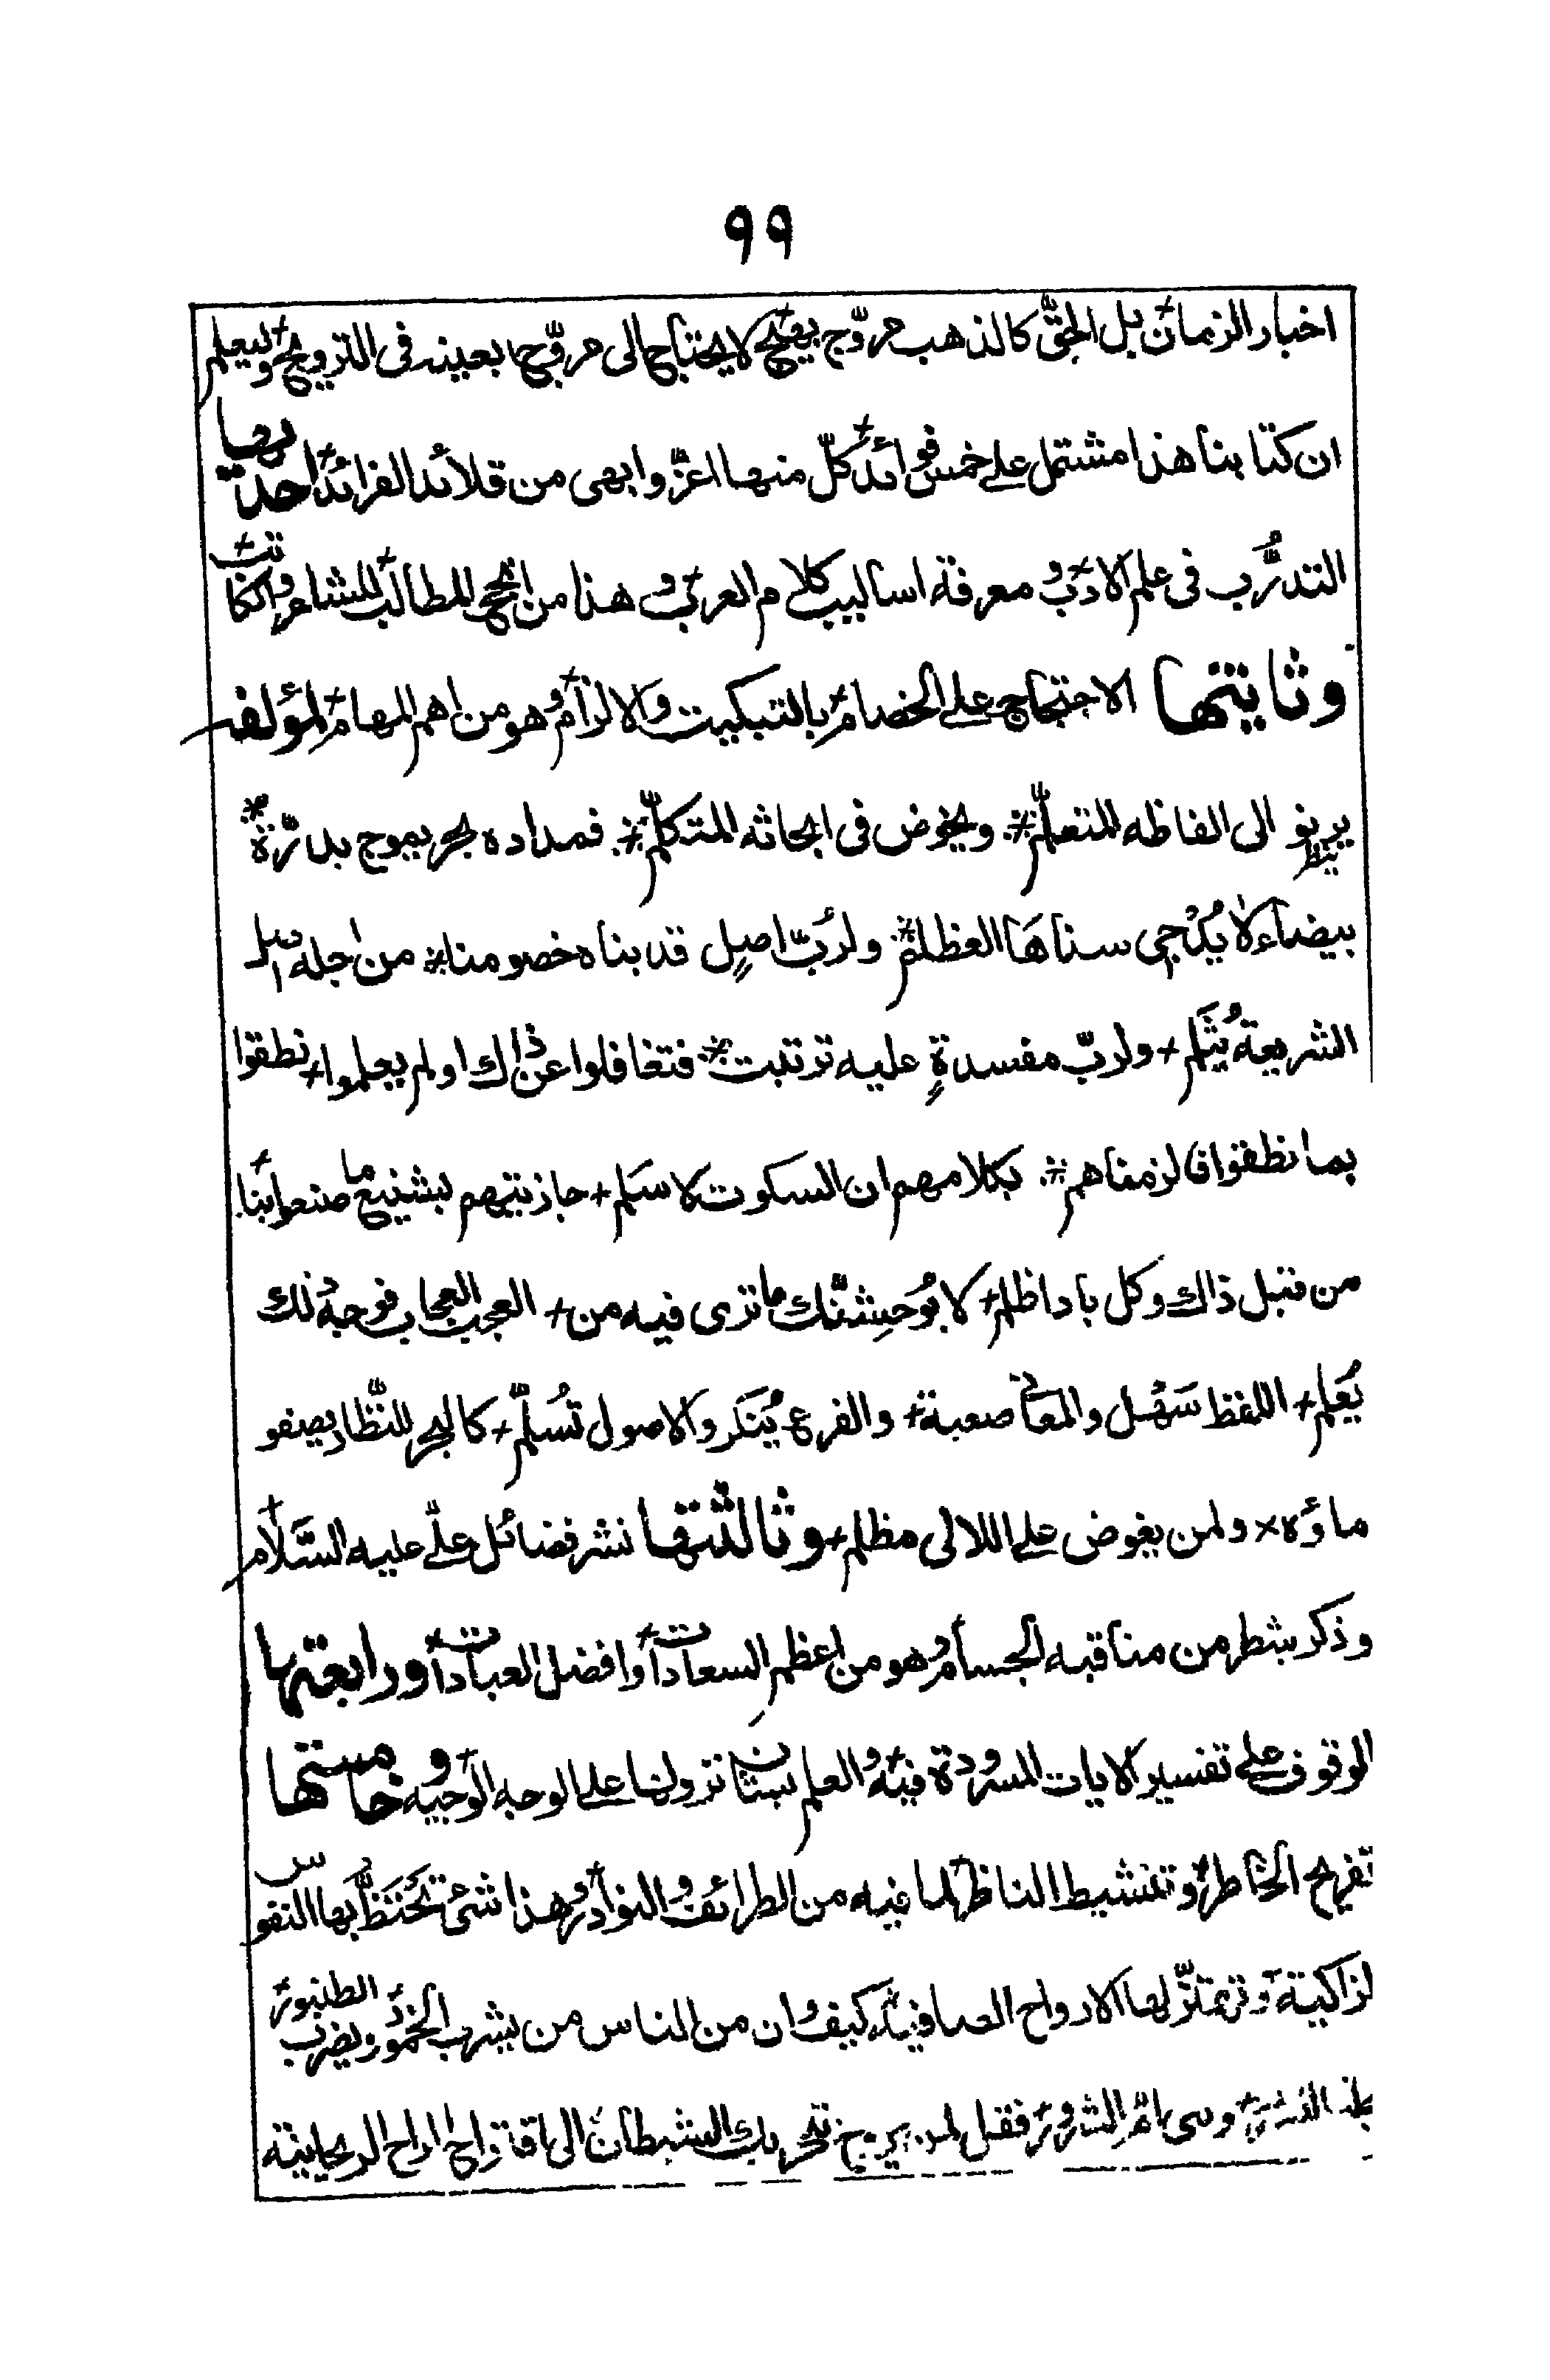 ٩٩
اخبار الزمان بل الحقّ كالذهب مروّج بعينه لا يحتاج الى مروّج يعينه فى الترويج وليعلم
ان كتابنا هذا مشتمل على خمس فوائد كلّ منها اعزّ وابهى من قلائد الفرائد احدٰيها
التدرُّب فى علم الادب ومعرفة اساليب كلام العرب وهذا من انجح المطالب للشاعر والكاتب
وثانيتها الاحتجاج على الخصام بالتبكيت والالزام وهو من اهم المهام لمؤلفه
يرنو الى الفاظه المتعلّم * ويخوض فى ابحاثه المتكلّم * فمداده بحر يموج بدرّة *
ينظر
بيضاء لا يُدْجى سناهَا العظلم * ولرُبّ اصلٍ قد بناه خصومنا * من اجله
الشريعة يُثَلم + ولربّ مفسدةٍ عليه ترتبت * فتغافلوا عن ذاك او لم يعلموا + نطقوا
بما نطقوا فالزمناهم * بكلامهم ان السكوت لاسَلم + جازيتهم بشنيع ما صنعوا بنا
من قبل ذاك وكل باد اظلم + لا يُوحِشنّك ما ترى فيه من + العجب العجاب فوجهُ ذلك
يُعلم + اللفظ سَهْل والمعانى صعبة + والفرع يُنكَر والاصول تُسلّم + كالبحر للنظّار يصفو
ماؤه × ولمن يغوض على اللالى مظلم + وثالثتها نشر فضائل علىّ عليه السَّلام
وذكر شطر من مناقبه الجسام وهو من اعظم السعادات وافضل العبادات ورابعتها
الوقوف على تفسير الايات المسرودة فيه والعلم بشان نزولها على الوجه الوجيه وخامستها
تفريح الخاطر وتنشيط الناظر لما فيه من الطرائف والنوادر وهذا شئ تحتَظّ بها النفوس
لزاكية وتهتزّ لها الارواح الصافية كيف وان من الناس من يشرب الخمور ويضرب الطنبور
فقل لمن يريح تحريك الشيطان الى اقداح الراح الريحانية